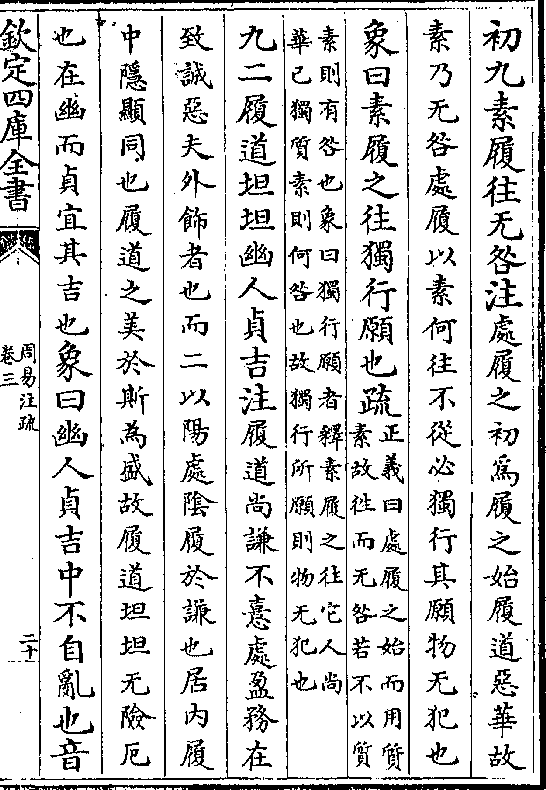 初九素履往无咎注處履之初爲履之始履道惡華故
素乃无咎處履以素何往不從必獨行其願物无犯也
象曰素履之往獨行願也疏
正義曰處履之始而用質
素故徃而无咎若不以質
素則有咎也象曰獨行願者釋素履之往它人尚
華己獨質素則何咎也故獨行所願則物无犯也
九二履道坦坦幽人貞吉注履道尚謙不憙處盈務在
致誠惡夫外飾者也而二以陽處陰履於謙也居内履
中隱顯同也履道之美於斯為盛故履道坦坦无險厄
也在幽而貞宜其吉也象曰幽人貞吉中不自亂也音
欽定四庫全書
周易注疏
卷三
二十